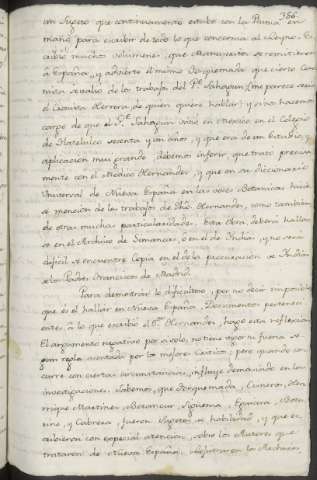 366
un sugeto que continuamente estubo con la Pluma en
mano, para escribir de todo lo que concernia al Reyno. Es
cribió muchos volumenes, que Manuscritos se remitieron
á España, y advierte el mismo Torquemada que cierto Coro
nista se valió de los trabajos del P.e Sahagun (me parece seria
el Coronista Herrera, de quien queria hablar) y si nos hacemos
cargo de que el P.e Sahagun vivió en Mexico en el Colegio
de Tlatelulco sesenta y un años, y que era de un Estudio, y
aplicacion muy grande, debemos inferir, que trató precisa
mente con el Medico Hernandez, y que en su Diccionario
Universal de Nueva España en las voces Botanicas haria
mencion de los trabajos de Hernandez, como tambien
de otras muchas particularidades. Esta Obra, deberá hallar
se en el Archivo de Simancas, ó en el de Indias, y no será
dificil se encuentre Copia en el de la Procuracion de Indias
de los Padres Franciscos de Madrid.
Para demostrar lo dificultoso, por no decir imposible
que es el hallar en Nueva España Documentos pertenecien
entes á lo que escribió el D.r Hernandez, hago esta reflexion
El argumento negativo por sí solo, no tiene vigor ni fuerza se
gun regla asentada por los mejores Criticos; pero quando con
curre con ciertas circunstancias, influye demasiado en las
investigaciones. Sabemos, que Torquemada, Cisneros, Hen
rrique Martinez, Betancur, Siguenza, Eguiara, Botu
rini, y Cabrera, fueron sugetos de habilidad, y que es
cribieron con especial atencion, sobre los Autores que
trataron de Nueva España,